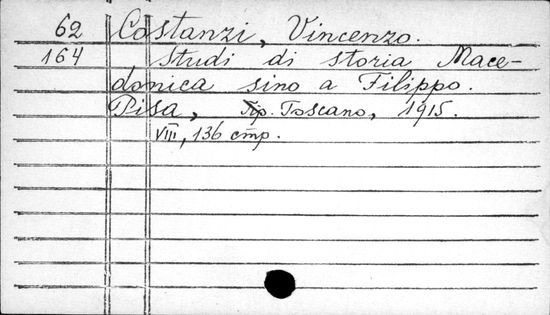 62 Costanzi, Vincenzo.
164 Studi di storia Mace-
donica sino a Filippo.
Pisa, Tip. Toscano, 1915.
VIII, 136 cmp.